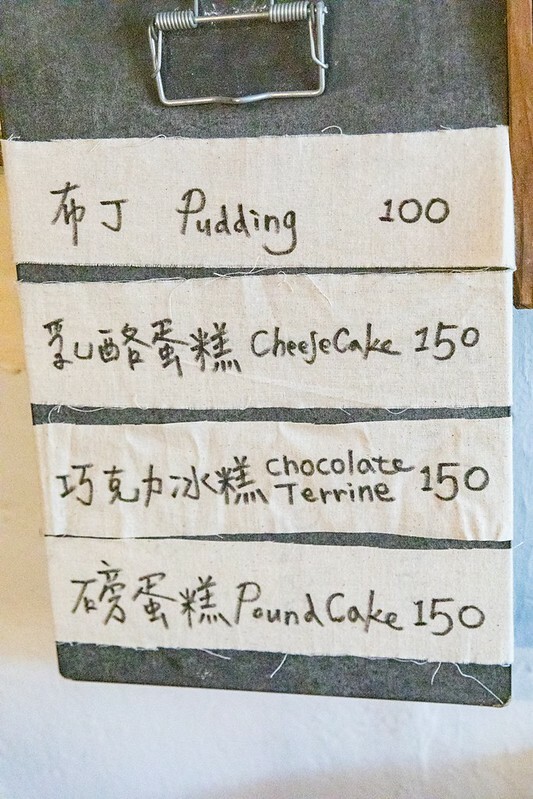 布丁 Pudding 100
乳酪蛋糕 CheeseCake 150
巧克力冰糕 chocolate Terrine 150
磅蛋糕 PoundCake 150